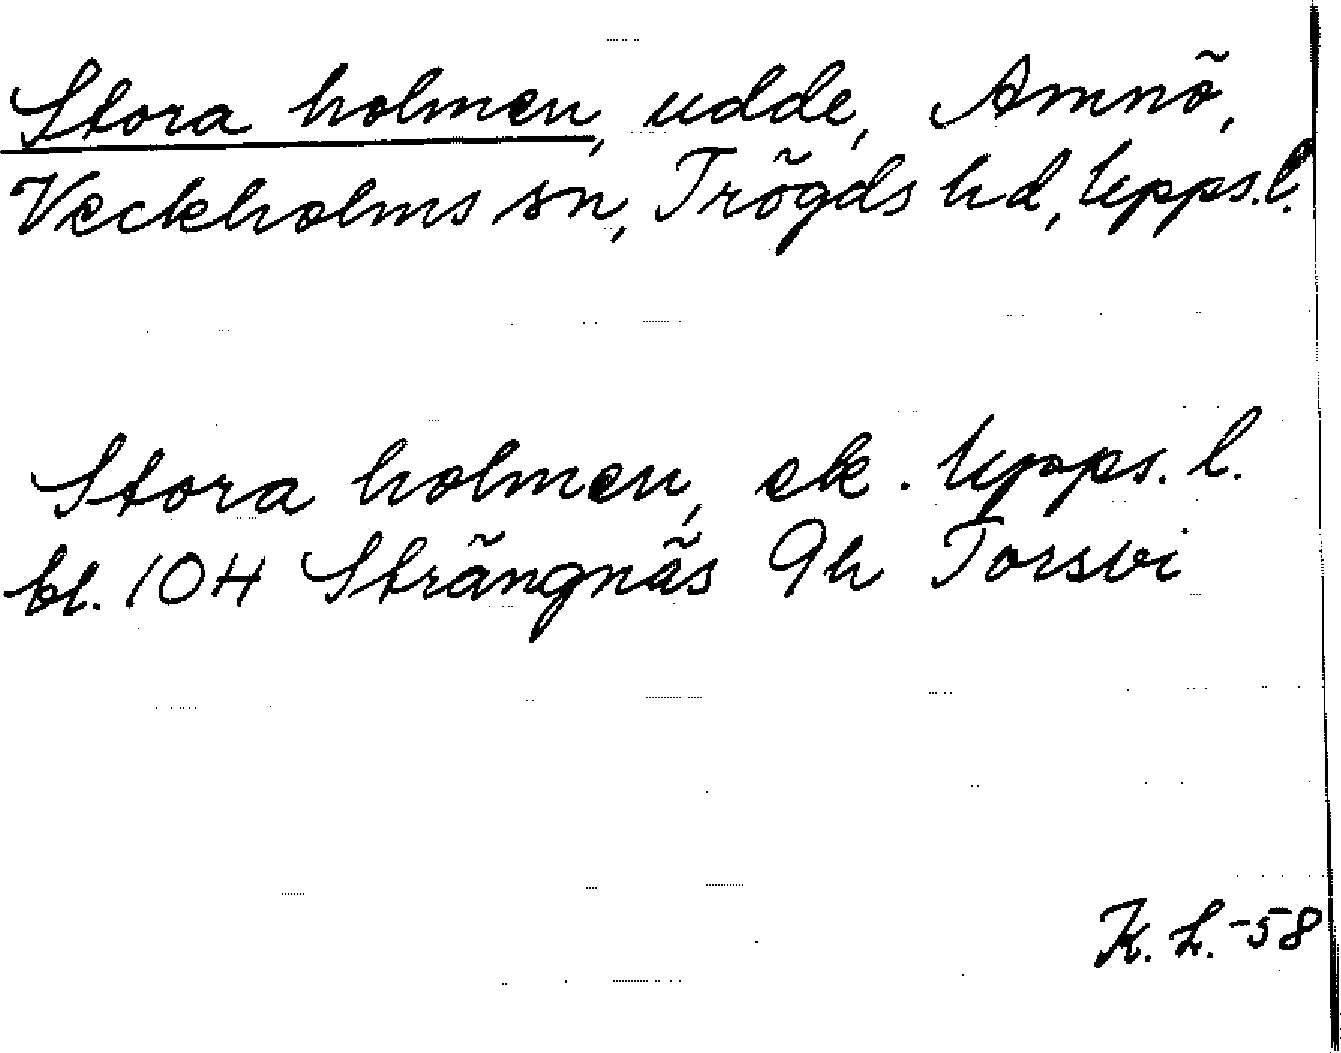 Stora holmen, udde, Amnö,
Veckholms sn, Trögds hd, Upps.l.
Stora holmen, ek. Upps. l.
bl. 104 Strängnäs 9h Torsvi
K. L. -58